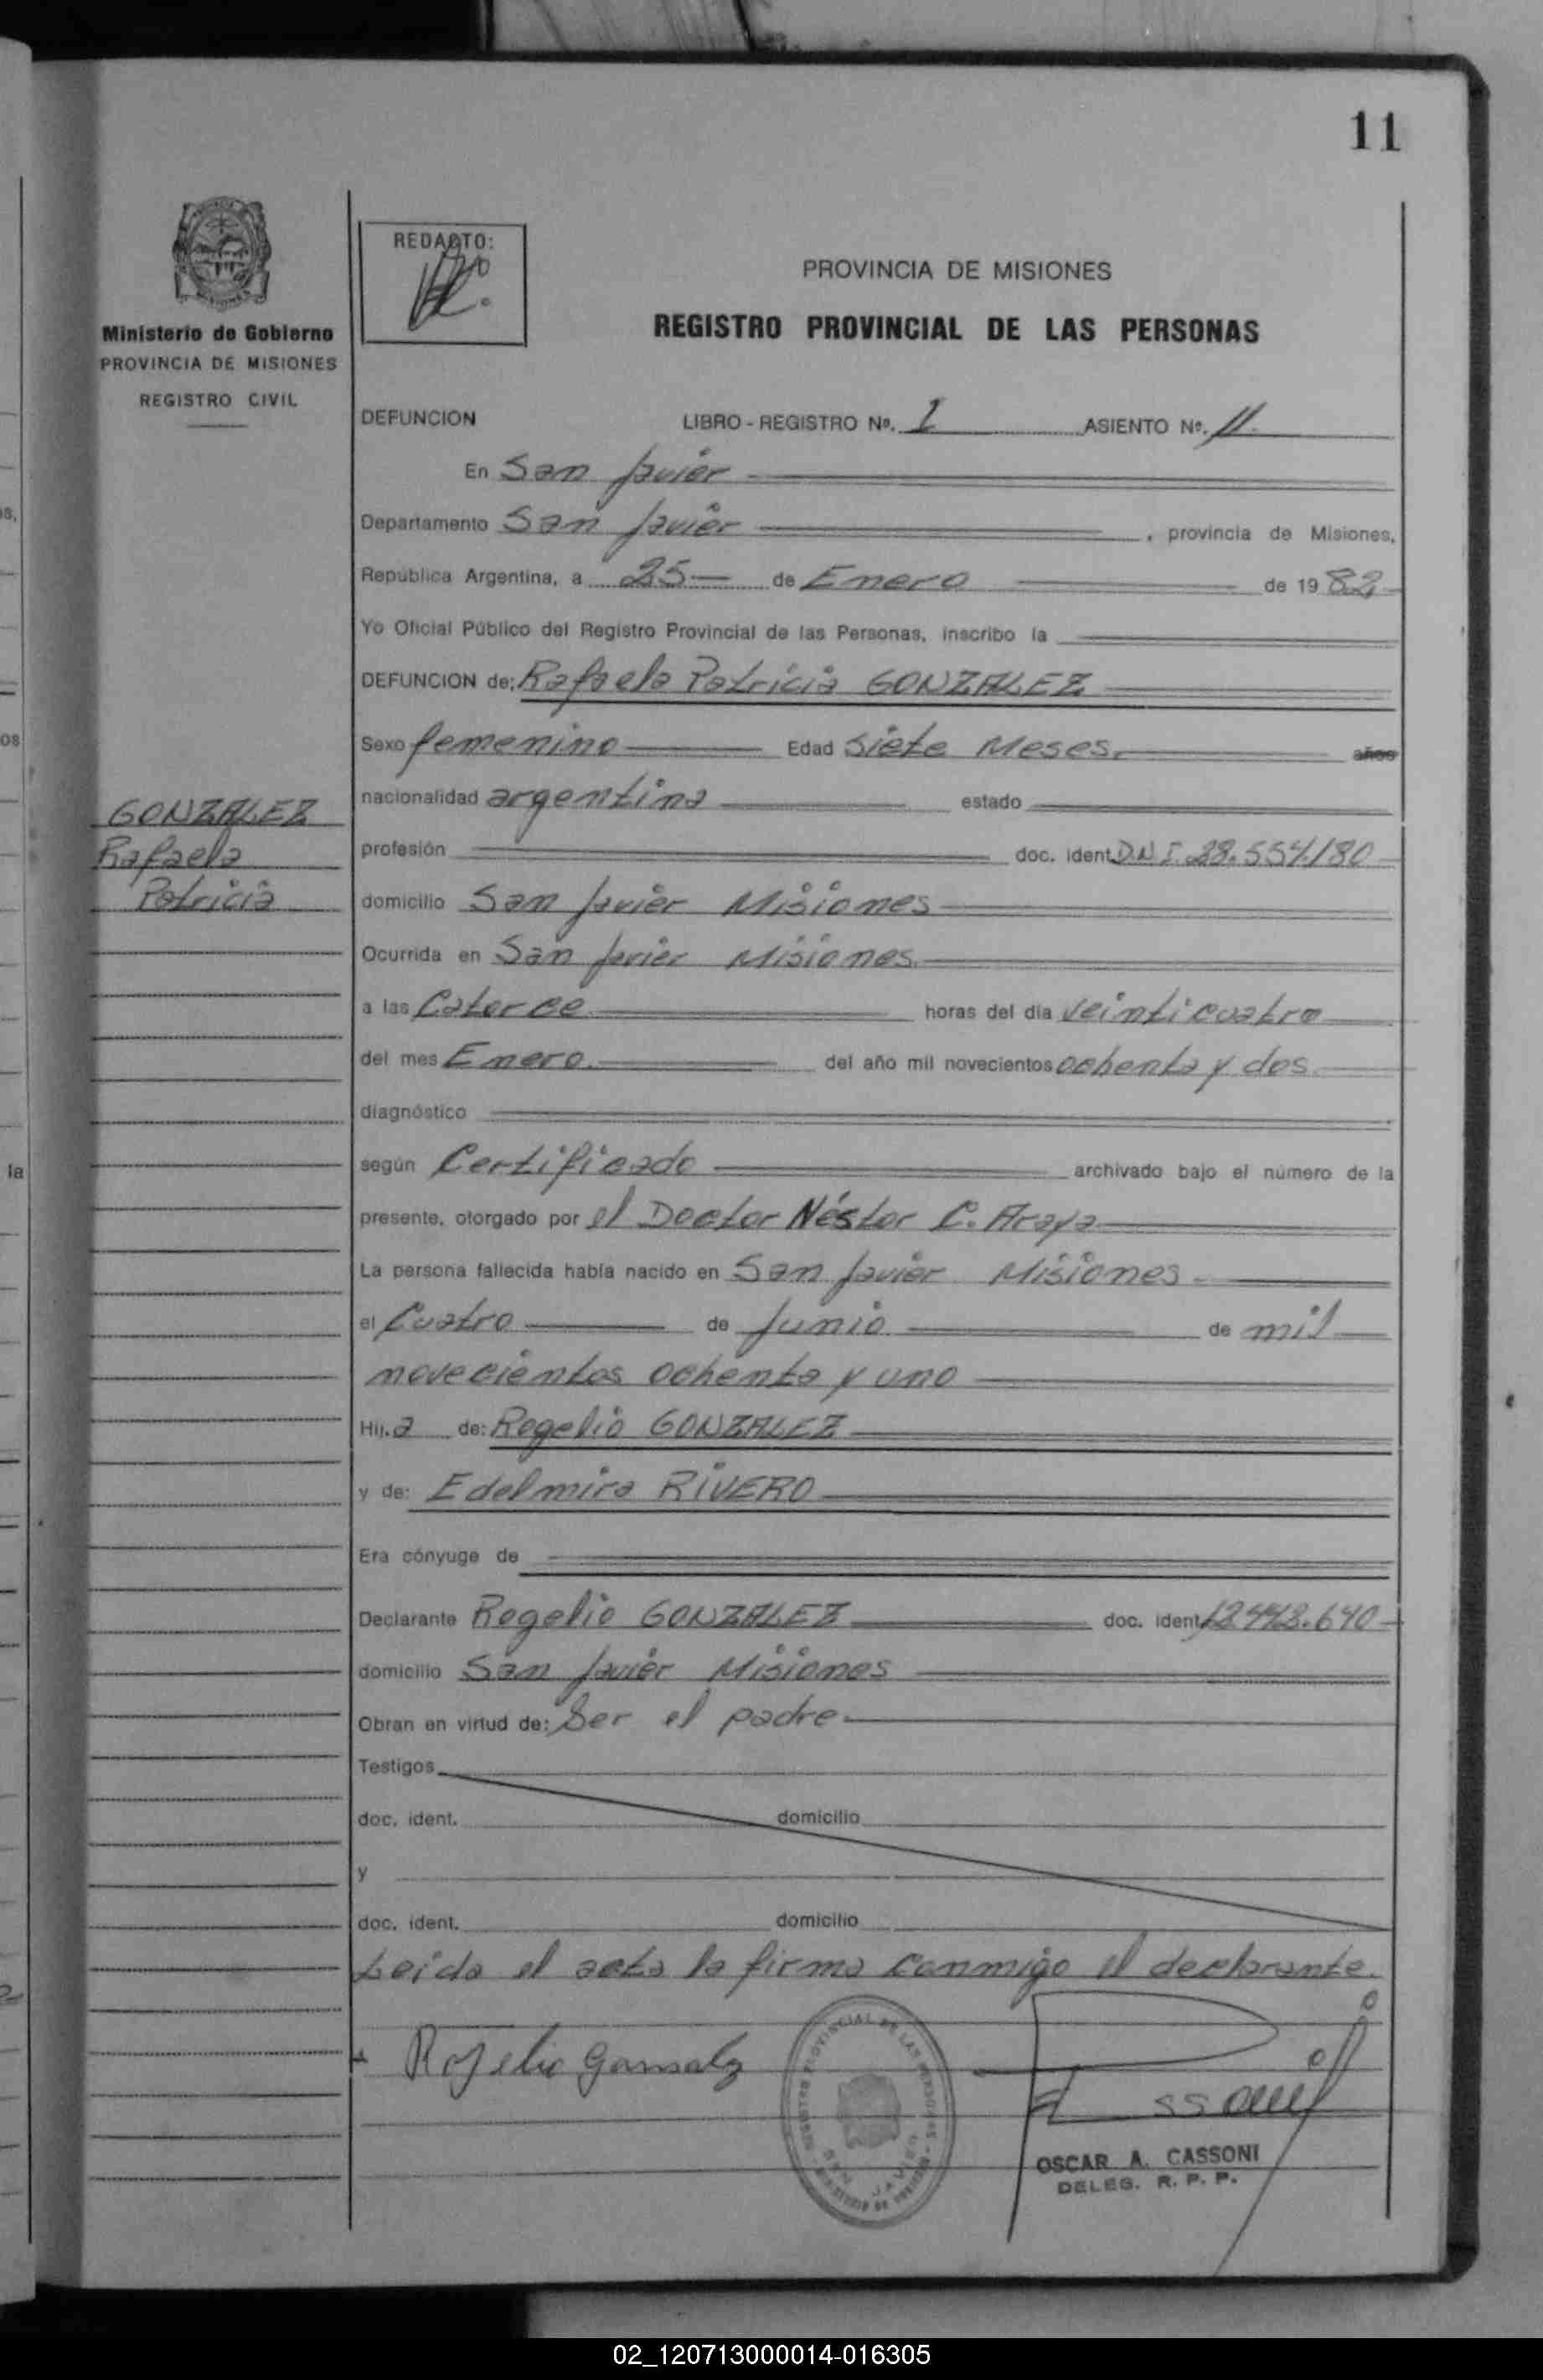 11
Ministerio de Gobierno
PROVINCIA DE MISIONES
REGISTRO CIVIL
REDACTO:
PROVINCIA DE MISIONES
REGISTRO PROVINCIAL DE LAS PERSONAS
DEFUNCION LIBRO - REGISTRO Nº. 1 ASIENTO Nº. 11.
En San Javier
Departamento San Javier , provincia de Misiones,
República Argentina, a 25 de Enero de 19 82
Yo Oficial Público del Registro Provincial de las Personas, inscribo la
DEFUNCION de: Rafaela Patricia GONZALEZ
Sexo femenino Edad Siete Meses. años
nacionalidad argentina estado
GONZALEZ
Rafaela
Patricia
profesión doc. ident. D.N.I. 28.554.180
domicilio San Javier Misiones
Ocurrida en San Javier Misiones.
a las Catorce horas del día veinticuatro
del mes Enero. del año mil novecientos ochenta y dos.
diagnóstico
según Certificado archivado bajo el número de la
presente, otorgado por el Doctor Néstor C. Araya
La persona fallecida había nacido en San Javier Misiones.
el Cuatro de Junio de mil
novecientos ochenta y uno
Hij. a de: Rogelio GONZALEZ
y de: Edelmira RIVERO
Era cónyuge de
Declarante Rogelio GONZALEZ doc. ident. 13.443.640
domicilio San Javier Misiones
Obran en virtud de: Ser el padre
Testigos
doc. ident. domicilio
y
doc. ident. domicilio
Leida el acta la firma conmigo el declarante.
Rojelio Gonsalz
REGISTRO PROVINCIAL DE LAS PERSONAS
SAN JAVIER
MINISTERIO DE GOBIERNO
OSCAR A. CASSONI
DELEG. R. P. P.
02_120713000014-016305